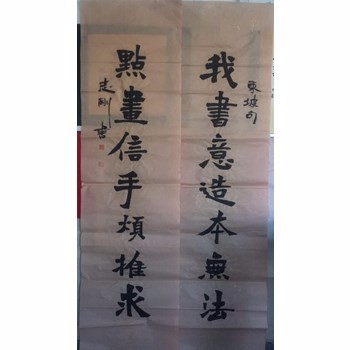 我書意造本無法
東坡句
點畫信手煩推求
志剛書